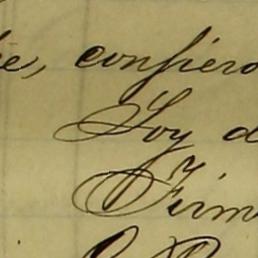 confiero
Soy d
Firm